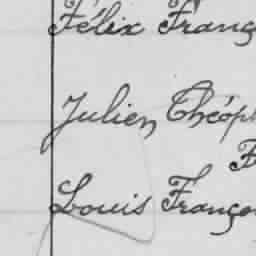 Félix Franç
Julien Théop
F
Louis Franço